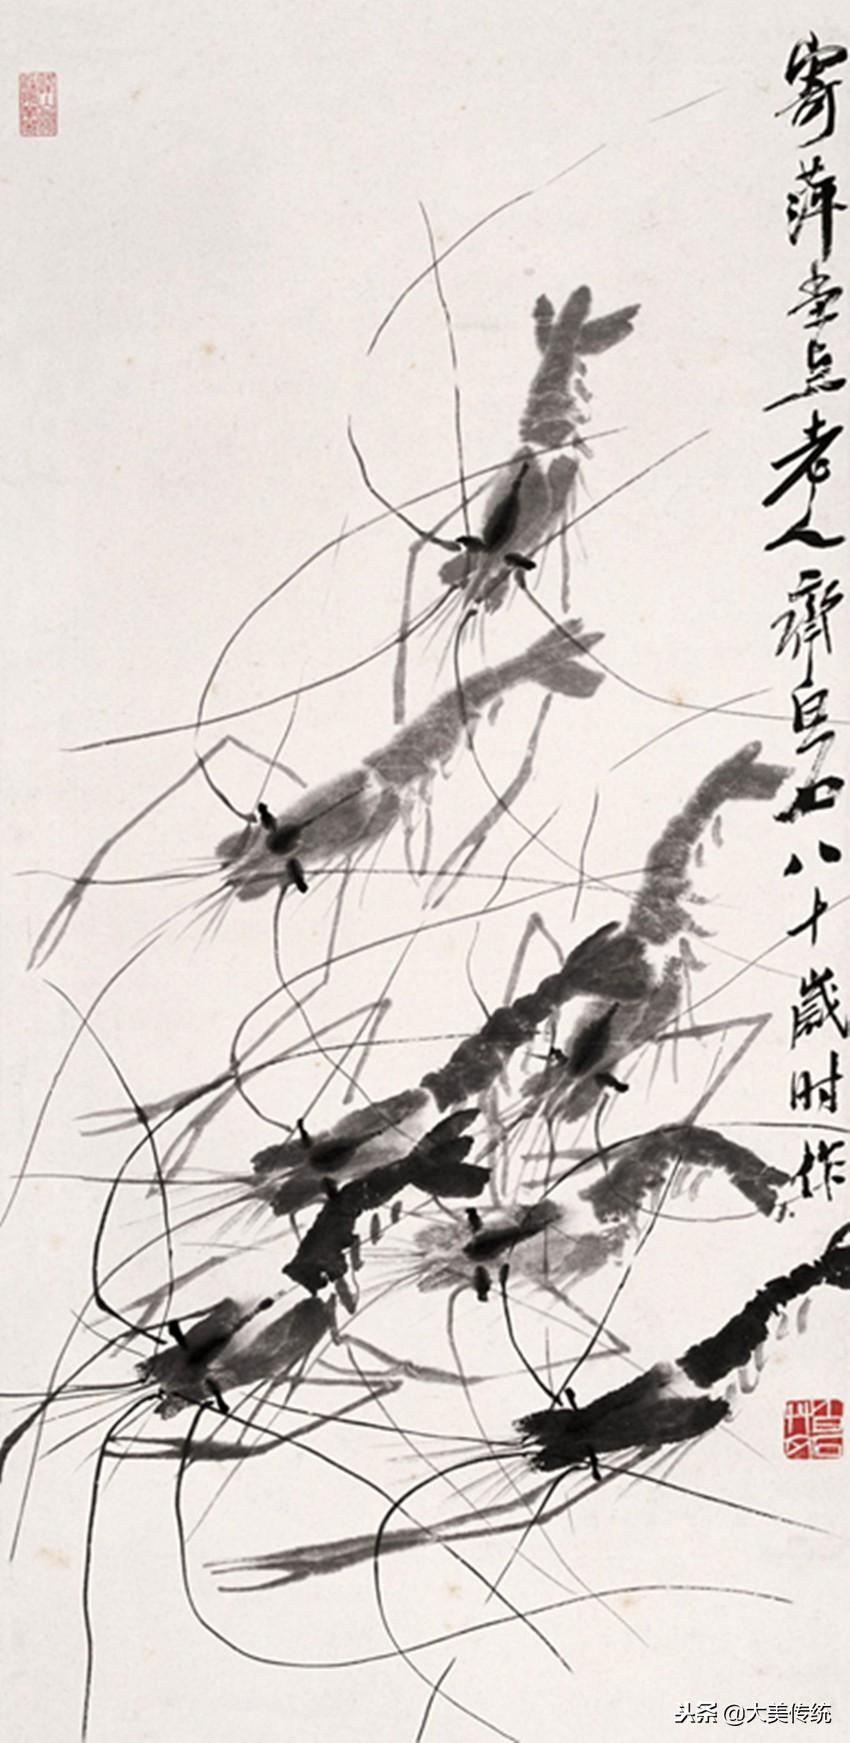 寄萍堂上老人齊白石八十歲时作
头条 @大美传统